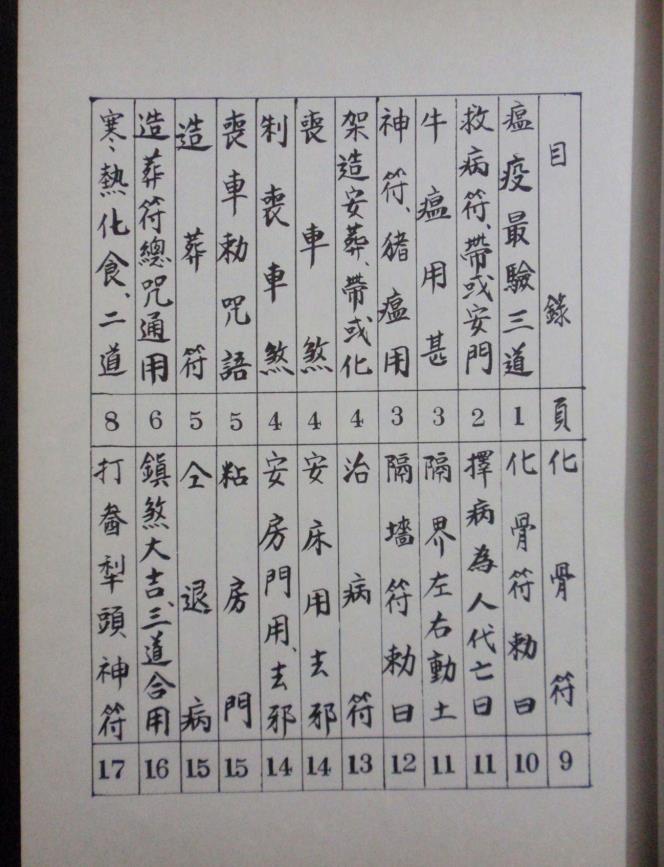 目錄 頁
瘟疫最驗三道 1
救病符、帶或安門 2
牛瘟用甚 3
神符、豬瘟用 3
架造安葬、帶或化 4
喪車煞 4
制喪車煞 4
喪車勅咒語 5
造葬符 5
造葬符總咒通用 6
寒熱化食、二道 8
化骨符 9
化骨符勅曰 10
擇病為人代亡曰 11
隔界左右動土 11
隔墻符勅曰 12
治病符 13
安床用去邪 14
安房門用、去邪 14
粘房門 15
仝退病 15
鎮煞大吉、三道合用 16
打畨犁頭神符 17